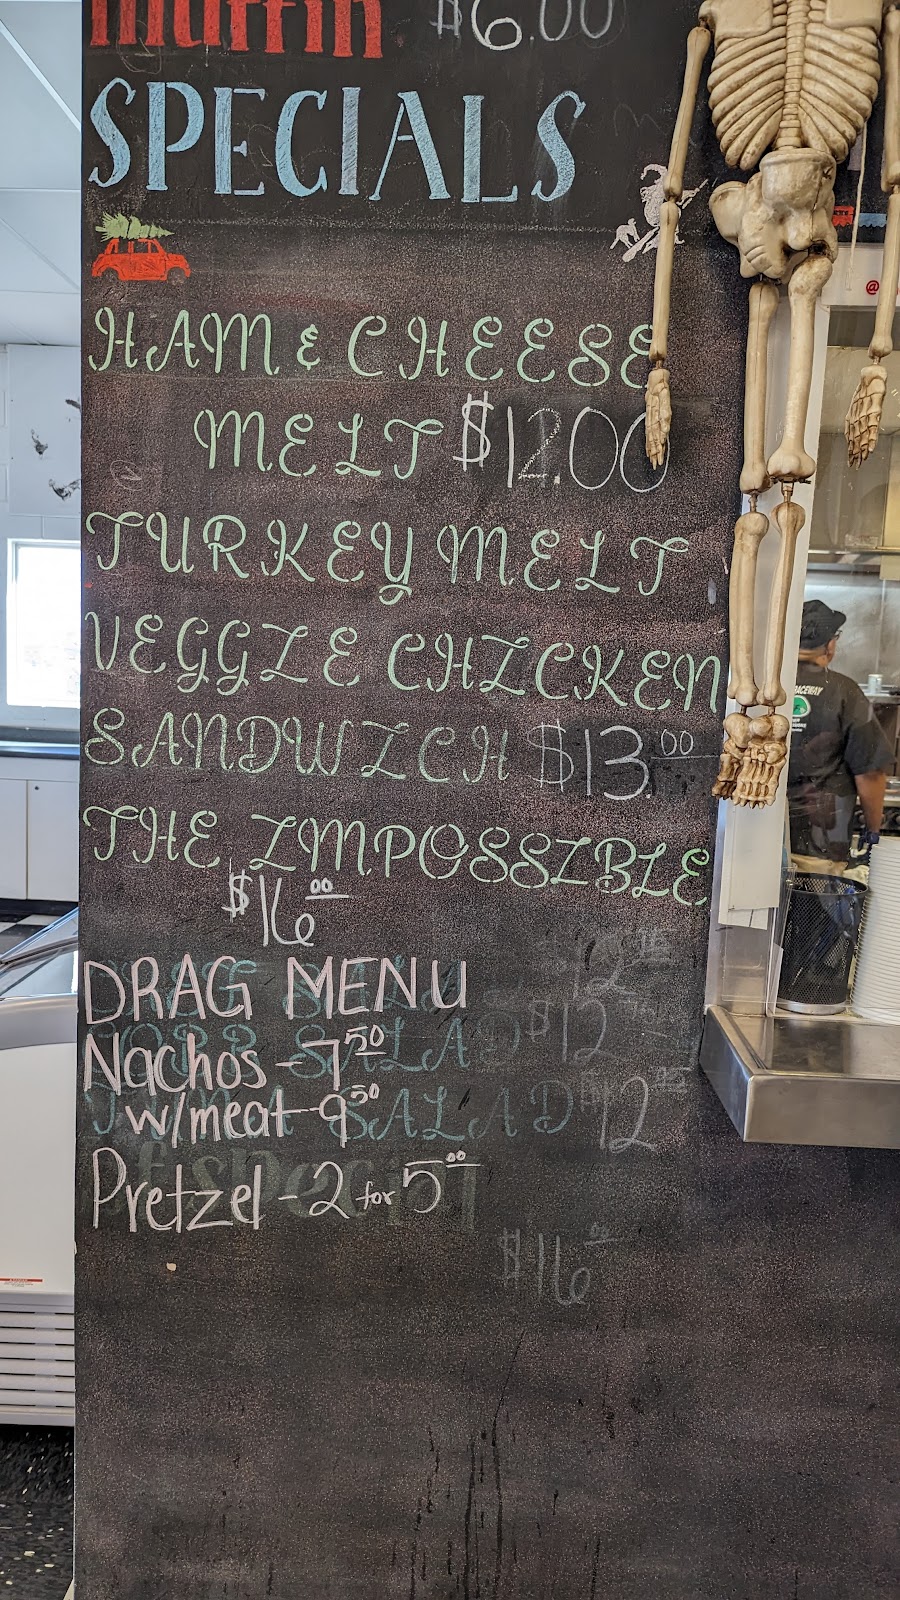 muffin $6.00
SPECIALS
HAM & CHEESE
MELT $12.00
TURKEY MELT
VEGGIE CHICKEN
SANDWICH $13.00
THE IMPOSSIBLE
$16.00
DRAG MENU
Nachos - 7.50
w/meat - 9.50
Pretzel - 2 for 5.00
SALAD $12
SALAD $12
$16.00
RACEWAY
@